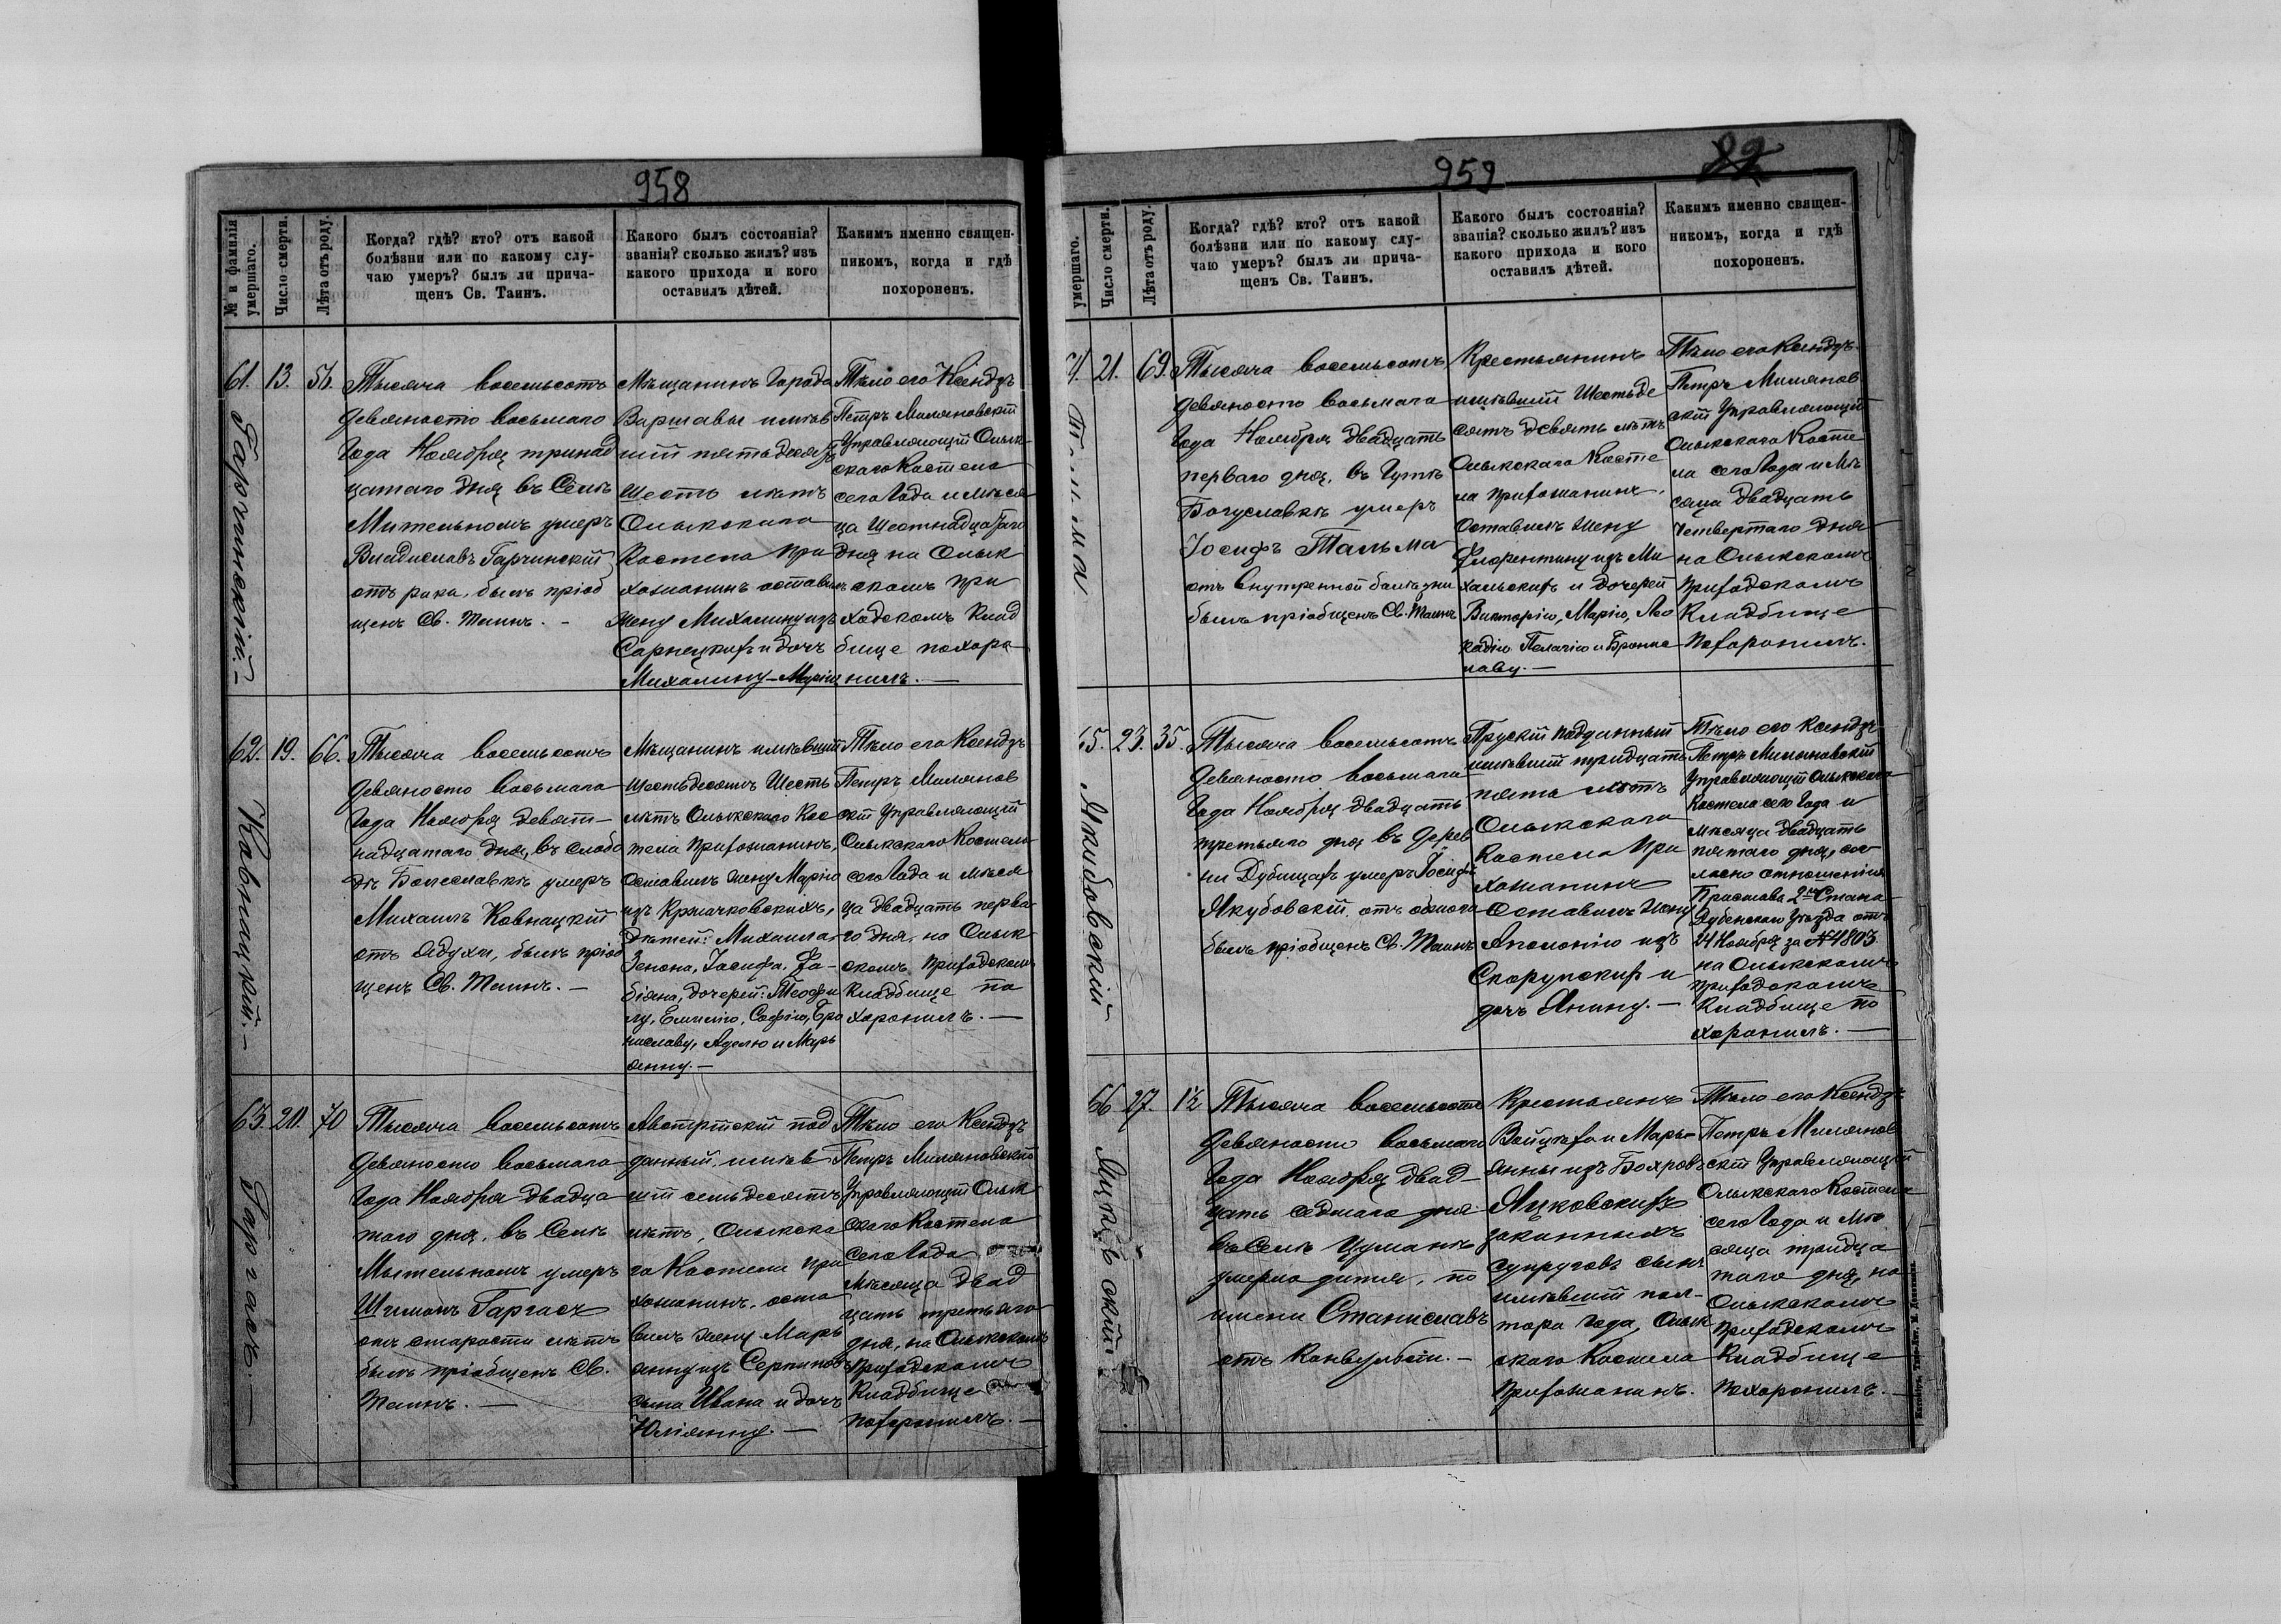 958
№ и фамилія умершаго.
Число смерти.
Лѣта отъ роду.
Когда? гдѣ? кто? отъ какой
болѣзни или по какому слу-
чаю умеръ? былъ ли прича-
щенъ Св. Таинъ.
Какого былъ состоянія?
званія? сколько жилъ? изъ
какого прихода и кого
оставилъ дѣтей.
Какимъ именно священ-
никомъ, когда и гдѣ
похороненъ.
61.
Гарчинскій. –
13.
56.
Тысяча восемьсотъ
девяносто восьмаго
Года Ноября тринад
цатаго дня въ Селѣ
Мительномъ умеръ
Владиславъ Гарчинскій
отъ рака, былъ пріоб
щенъ Св. Таинъ. –
Мѣщанинъ Города
Варшавы имѣв
шій пятьдесятъ
Шесть лѣтъ
Олыкскаго
Костела При
хожанинъ оставилъ
жену Михалину изъ
Сарнецкихъ и дочь
Михалину-Марію
Тѣло его Ксендзъ
Петръ Миляновскій
Управляющій Олык
скаго Костела
сего Года и мѣся
ца Шестнадцатаго
дня на Олык
скомъ при
ходскомъ клад
бище похоро
нилъ. —
62.
Ковнацкій. –
19.
66.
Тысяча восемьсотъ
девяносто восьмаго
Года Ноября девят-
надцатаго дня, въ слобо
дѣ Болеславкѣ умеръ
Михаилъ Ковнацкій
отъ одухи, былъ пріоб
щенъ Св. Таинъ. –
Мѣщанинъ имѣвшій
Шестьдесятъ Шесть
лѣтъ Олыкскаго Кос
тела Прихожанинъ,
Оставилъ жену Марію
изъ Кржачковскихъ,
Дѣтей: Михаила,
Зенона, Іосифа, Фа-
біяна, дочерей: Теофи
лу, Емилію, Софію, Бро
ниславу, Аделю и Марь
янну. –
Тѣло его Ксендзъ
Петръ Милянов
скій Управляющій
Олыкскаго Костела
сего Года и мѣся
ца двадцать перва
го дня, на Олык-
скомъ Приходскомъ
Кладбище по
хоронилъ. —
63.
Гаргасъ. —
20.
70
Тысяча восемьсотъ
девяносто восьмаго
Года Ноября двадца
таго дня, въ Селѣ
Мытельномъ умеръ
Шимонъ Гаргасъ
отъ старости лѣтъ
былъ пріобщенъ Св.
Таинъ. —
Австрійскій под
данный, имѣв
шій семьдесятъ
лѣтъ, Олыкска
го Костела при
хожанинъ, оста
вилъ жену Марь
янну изъ Серпиновъ
сына Ивана и дочь
Юліянну. —
Тѣло его Ксендзъ
Петръ Миляновскій
Управляющій Олык
скаго Костела
Сего Года
Мѣсяца двад
цать третьяго
дня, на Олыкскомъ
Приходскомъ
Кладбище
похоронилъ. —
959
умершаго.
Число смерти.
Лѣта отъ роду.
Когда? гдѣ? кто? отъ какой
болѣзни или по какому слу-
чаю умеръ? былъ ли прича-
щенъ Св. Таинъ.
Какого былъ состоянія?
званія? сколько жилъ? изъ
какого прихода и кого
оставилъ дѣтей.
Какимъ именно священ-
никомъ, когда и гдѣ
похороненъ.
4.
21.
69.
Тысяча восемьсотъ
девяносто восьмаго
Года Ноября двадцать
перваго дня, въ Гутѣ
Богуславкѣ умеръ
Іосифъ Тальма
отъ внутренной болѣзни
былъ пріобщенъ Св. Таинъ
Крестьянинъ
имѣвшій Шестьде
сятъ девять лѣтъ
Олыкскаго Косте
ла прихожанинъ.
Оставилъ жену
Флорентину изъ Ми
хальскихъ и дочерей
Викторію, Марію, Лео
кадію Пелагію и Брони
славу. —
Тѣло его Ксендзъ
Петръ Милянов
скій Управляющій
Олыкскаго Косте
ла сего Года и Мѣ
сяца двадцать
четвертаго дня
на Олыкскомъ
Приходскомъ
Кладбище
Похоронилъ.
65.
Якубовскій
23.
35.
Тысяча восемьсотъ
девяносто восьмаго
Года Ноября двадцать
третьяго дня въ дерев
ни Дубищахъ умеръ Іосифъ
Якубовскій отъ
былъ пріобщенъ Св. Таинъ
Прускій подданный
имѣвшій тридцать
пять лѣтъ
Олыкскаго
Костела При
хожанинъ
Оставилъ жену
Аполонію изъ
Скорупскихъ и
дочь Янину. –
Тѣло его Ксендзъ
Петръ Миляновскій
Управляющій Олыкскаго
Костела сего Года и
мѣсяца двадцать
пятаго дня, сог
ласно отношенія
Пристава 2го Стана
Дубенскаго Уѣзда отъ
24 Ноября за № 4803
на Олыкскомъ
Приходскомъ
Кладбище по
хоронилъ. —
66
Яцковскій
27.
1½
Тысяча восемьсотъ
девяносто восьмаго
Года Ноября двад-
цать седьмаго дня
въ Селѣ Цуманѣ
умерло дитя, по
имени Станиславъ
отъ Конвульсіи. –
Крестьянъ
Войцѣха и Марь-
янны изъ Бохровъ
Яцковскихъ
законныхъ
супруговъ сынъ
имѣвшій пол-
тора Года, Олык
скаго Костела
Прихожанинъ.
Тѣло его Ксендзъ
Петръ Милянов
скій Управляющій
Олыкскаго Костела
сего Года и Мѣ
сяца тридца
таго дня, на
Олыкскомъ
Приходскомъ
Кладбище
Похоронилъ. –